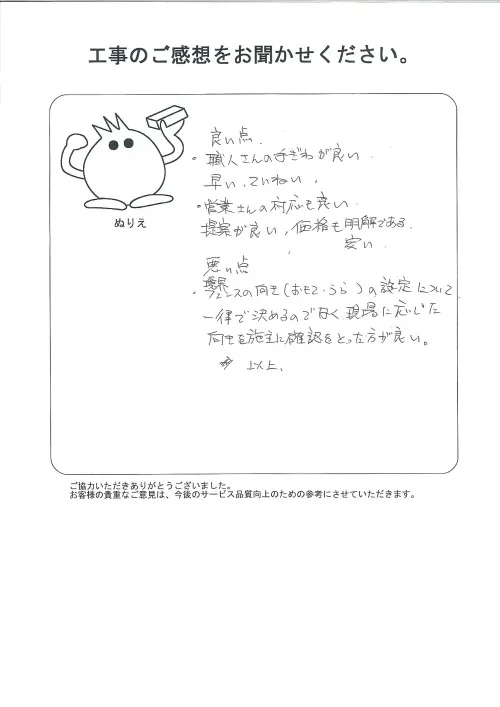 工事のご感想をお聞かせください。
ぬりえ
良い点
・職人さんの手ぎわが良い
早い、ていねい、
・営業さんの対応も良い
提案が良い、価格も明解である
安い
悪い点
・境界フェンスの向き(おもて・うら)の設定について
一律で決めるのでなく現場に応じた
向きを施主に確認をとった方が良い。
以上、
ご協力いただきありがとうございました。
お客様の貴重なご意見は、今後のサービス品質向上のための参考にさせていただきます。